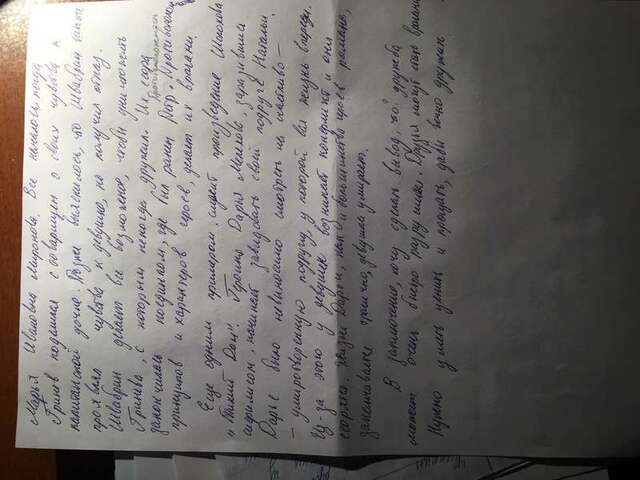 Марья Ивановна Миронова. Все началось, когда
Гринев поделился с товарищем о своих чувства к
капитанской дочке. Позже выяснилось, что Швабрин также
проявлял чувства к девушке, но получил отказ.
Швабрин делает все возможное, чтобы уничтожить
Гринева, с которым некогда дружил. Их ссора
закончилась поединком, где был ранен Петр. Противоположность
принципов и характеров героев, делает их врагами.
Еще одним примером, служит произведение Шолохова
"Тихий Дон". Героиня Дарья Мелехова, заразившись
сифилисом, начинает завидовать своей подруге Наталье.
Дарье было невыносимо смотреть на счастливо-
- умиротворенную подругу, у которой вся жизнь впереди.
Из-за этого у девушек возникает конфликт и они
ссорятся. Жизнь Дарьи, как и большинства героев романа,
заканчивается трагично, девушка умирает.
В заключение, хочу сделать вывод, что дружба
может очень быстро разрушиться. Друзья могут стать врагами
Нужно уметь ценить и прощать, дабы вечно дружить